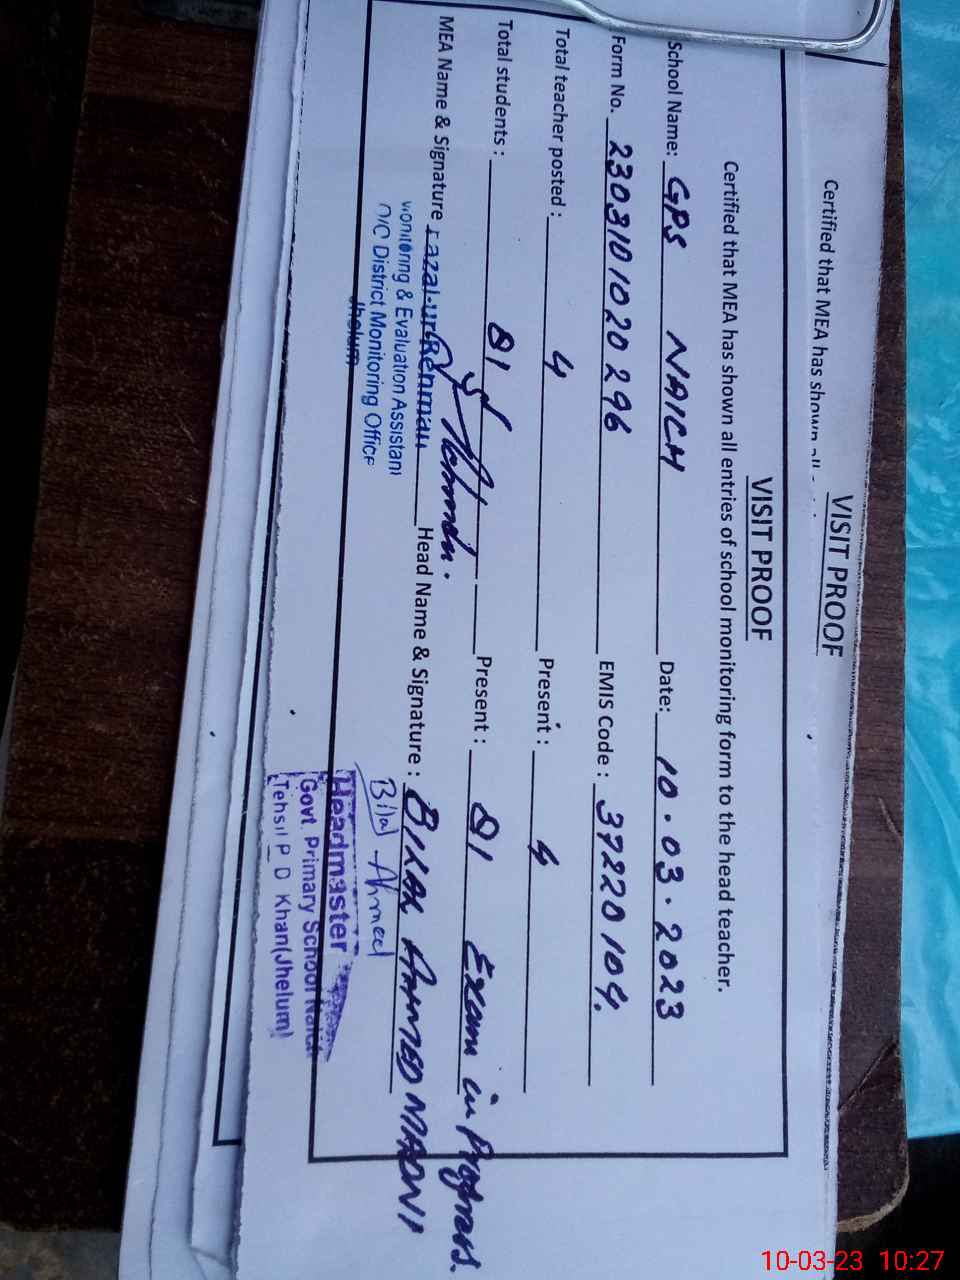 VISIT PROOF
Certified that MEA has shown
VISIT PROOF
Certified that MEA has shown all entries of school monitoring form to the head teacher.
School Name: GPS NAICH Date: 10.03.2023
Form No. 2303101020296 EMIS Code : 37220104.
Total teacher posted : 4 Present : 4
Total students : 81 Present : 81 Exam in Progress.
MEA Name & Signature Fazal-ur-Rehman Head Name & Signature : BILAL AHMED MADNI
Rehman.
Monitoring & Evaluation Assistant
O/O District Monitoring Office
Jhelum
Bilal Ahmed
Headmaster
Govt. Primary School Naich
Tehsil P D Khan(Jhelum)
10-03-23 10:27